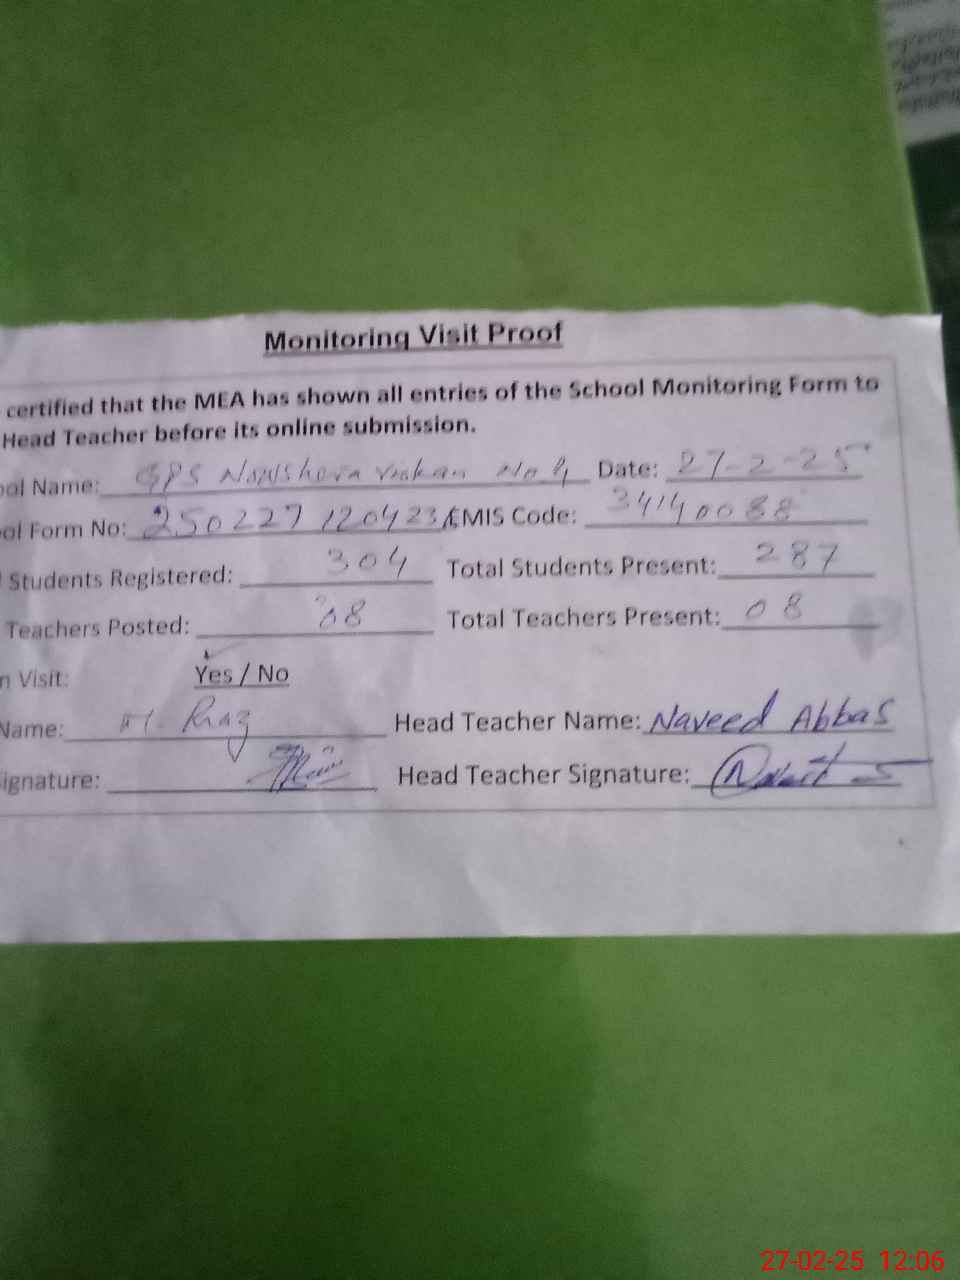 Monitoring Visit Proof
certified that the MEA has shown all entries of the School Monitoring Form to
Head Teacher before its online submission.
ool Name: GPS Nowshera Virkan No 4 Date: 27-2-25
ool Form No: 250227120423 EMIS Code: 34140088
Students Registered: 304 Total Students Present: 287
Teachers Posted: 08 Total Teachers Present: 08
n Visit: Yes / No
Name: M. Riaz Head Teacher Name: Naveed Abbas
ignature: Head Teacher Signature:
27-02-25 12:06